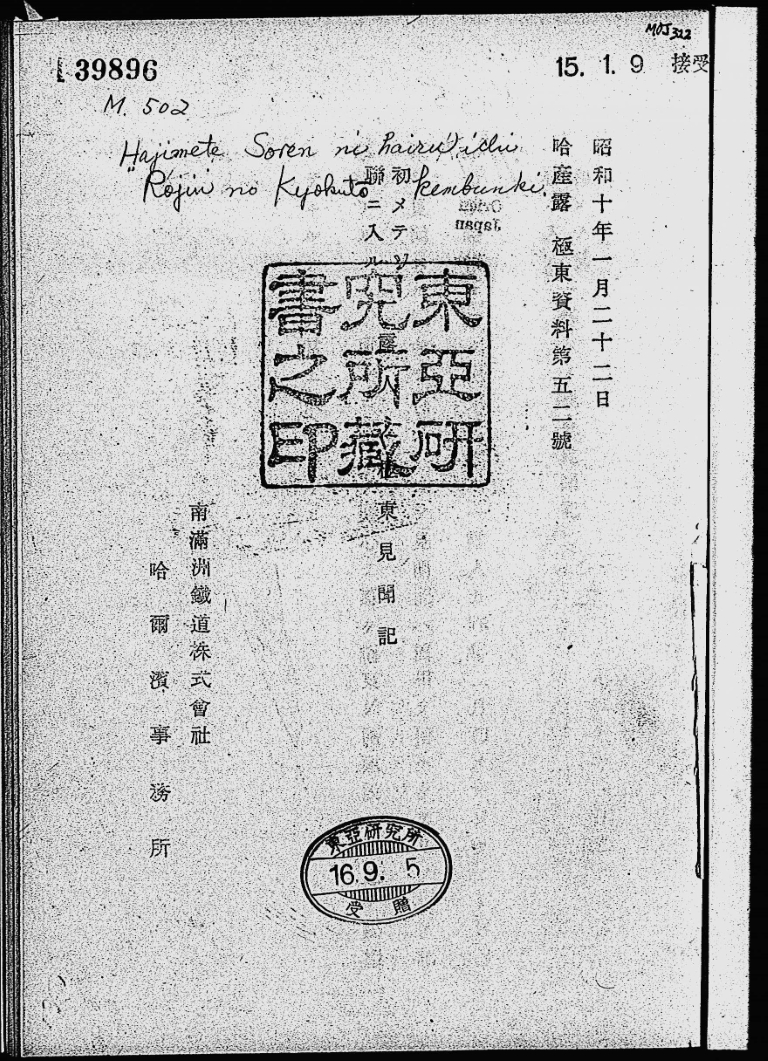 MOJ 322
39896
15. 1. 9 接受
M. 502
Hajimete Soren ni hairu ichi
"Rōjin no Kyokutō kembunki.
昭和十年一月二十二日
哈産露 極東資料第五二號
初メテソ
聯ニ入ル
東見聞記
東亞研
究所藏
書之印
Japan
南滿洲鐵道株式會社
哈爾濱事務所
東亞研究所
16.9.5
受贈